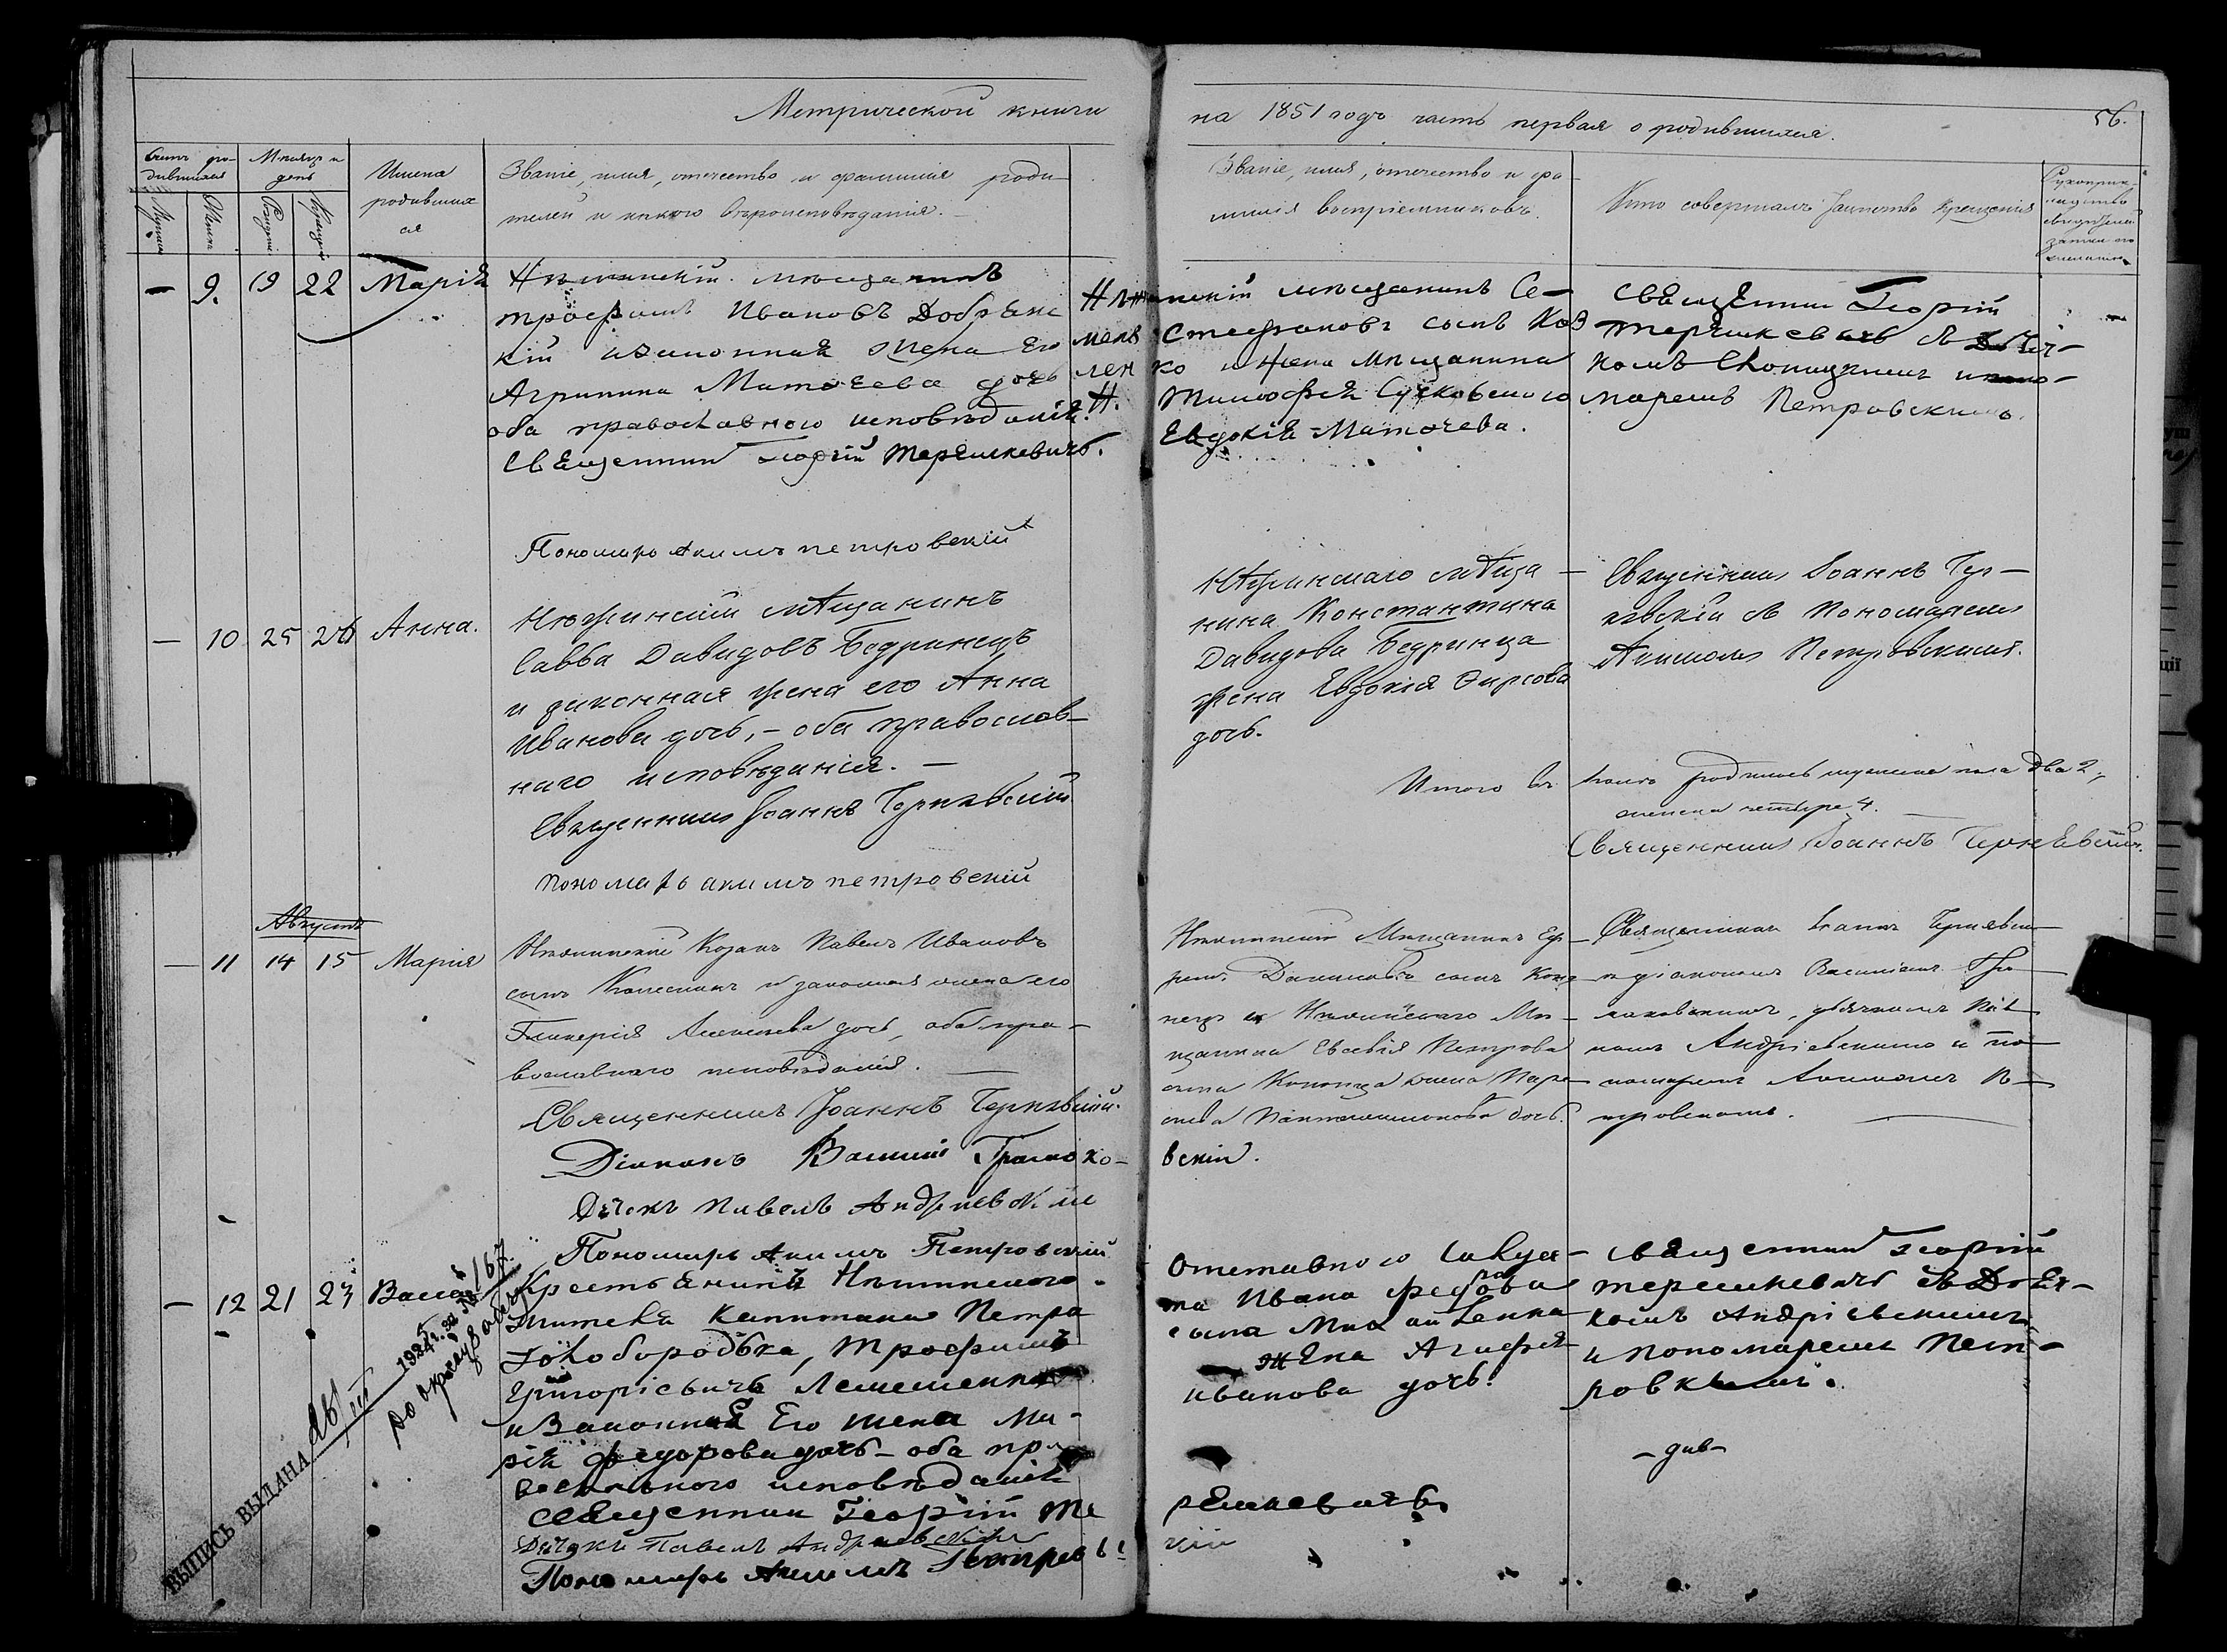 Метрической книги
на 1851 годъ часть первая о родившихся.
56.
Счетъ ро-
дившихся
Мѣсяцъ и
день
Имена
родивших
ся
Званіе, имя, отчество и фамилия роди-
телей и какого вѣроисповѣданія.
Званіе, имя, отчество и фа-
милія воспріемниковъ.
Кто совершалъ таинство крещенія
— 9. 19 22 Марія
Нѣжинскій мѣщанинъ
Трофимъ Ивановъ Добрянс
кій и законная жена его
Агрипина Матвѣева дочь
оба православного исповѣданія.
Священник Георгій Терешкевичъ.
Пономарь Акимъ Петровскій
Нѣжинскій мѣщанинъ Се-
менъ Стефановъ сынъ Коз
ленко и жена мѣщанина
Тимофея Сучковского
Евдокія Матвѣева.
Священник Георгій
Терешкевичъ съ Дьяч-
комъ и поно-
маремъ Петровскимъ.
— 10 25 26 Анна.
Нѣжинскій мѣщанинъ
Савва Давидовъ Бедринецъ
и законная жена его Анна
Иванова дочь, – оба православ-
наго исповѣданія. —
Священникъ Іоаннъ Чернявскій
пономарь акимъ петровскій
Нѣжинскаго мѣща-
нина Константина
Давидова Бедринца
жена Евдокія Фирсова
дочь.
Священникъ Іоаннъ Чер-
нявскій съ Пономаремъ
Акимомъ Петровскимъ.
Итого въ родилось мужеска пола два 2,
женска четыре 4.
Священникъ Іоаннъ Чернявскій.
Августъ
— 11 14 15 Мария
Нѣжинскій Козакъ Павелъ Ивановъ
сынъ Колесникъ и законная жена его
Гликерія Алексѣева дочь, оба пра-
вославнаго исповѣданія. —
Священникъ Іоаннъ Чернявскій.
Діаконъ Василій Громако-
вскій.
Дячокъ Павелъ Андриевскіи
Пономарь Акимъ Петровскій
Нѣжинскій Мѣщанинъ Еф-
Даниловъ сынъ Коно
пецъ и Нѣжинского Мѣ-
щанина Евсевія Петрова
сына Конопца жена Пара-
скева Пантелеимонова дочь.
Священникъ Іоаннъ Чернявскій
съ діакономъ Василіемъ Гро
маковскимъ, дьячкомъ Пав
ломъ Андріевскимъ и по
номаремъ Акимомъ Пе
тровскимъ. —
— 12 21 23 Васса
Крестьянинъ Нѣжинского
жителя капитана Петра
Голобородька, Трофимъ
Григоріевичъ Лемешенко
и Законная Его жена Ма-
рія Федорова дочь – оба пра
вославного исповѣданія
Священник Георгій Те
решкевичъ
Дячокъ Павелъ Андриевскій
Пономарь Акимъ Петровс
кій
Отставного Солда-
та Ивана Федорова
сына Михайленка
жена Агафія
Иванова дочь.
Священник Георгій
Терешкевичъ съ Дьяч-
комъ Андріевскимъ
и пономаремъ Пет-
ровкимъ.
ВЫПИСЬ ВЫДАНА
№ 167